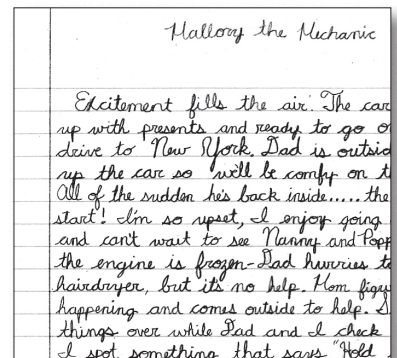 Mallory the Mechanic
Excitement fills the air. The car
up with presents and ready to go o
drive to New York. Dad is outsid
up the car so we'll be comfy on t
All of the sudden he's back inside.....the
start! I'm so upset, I enjoy going
and can't wait to see Nanny and Popp
the engine is frozen-Dad hurries to
hairdryer, but it's no help. Mom figu
happening and comes outside to help. S
things over while Dad and I check
I spot something that says "Hold